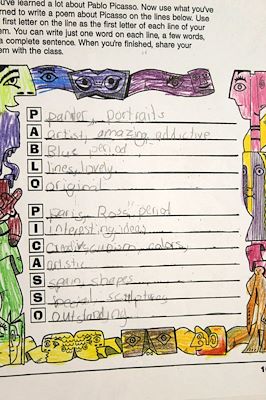 u've learned a lot about Pablo Picasso. Now use what you've
rned to write a poem about Picasso on the lines below. Use
first letter on the line as the first letter of each line of your
em. You can write just one word on each line, a few words,
a complete sentence. When you're finished, share your
em with the class.
Painter, Portraits
artist, amazing, addictive
Blue period
lines, lovely,
original
paris, Rose period
interesting, ideas
Creative, cubism, colors,
artistic
spain, shapes
Special sculptures
outstanding